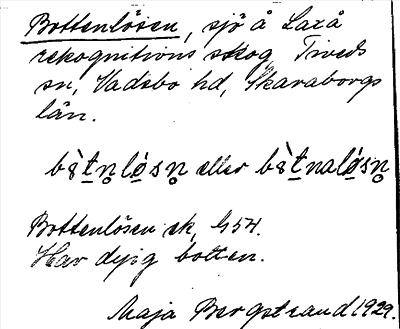 Bottenlösen, sjö å Laxå
rekognitions skog, Tiveds
sn, Vadsbo hd, Skaraborgs
län.
eller
Bottenlösen ek, G 54.
Har dyig botten.
Maja Bergstrand 1929.